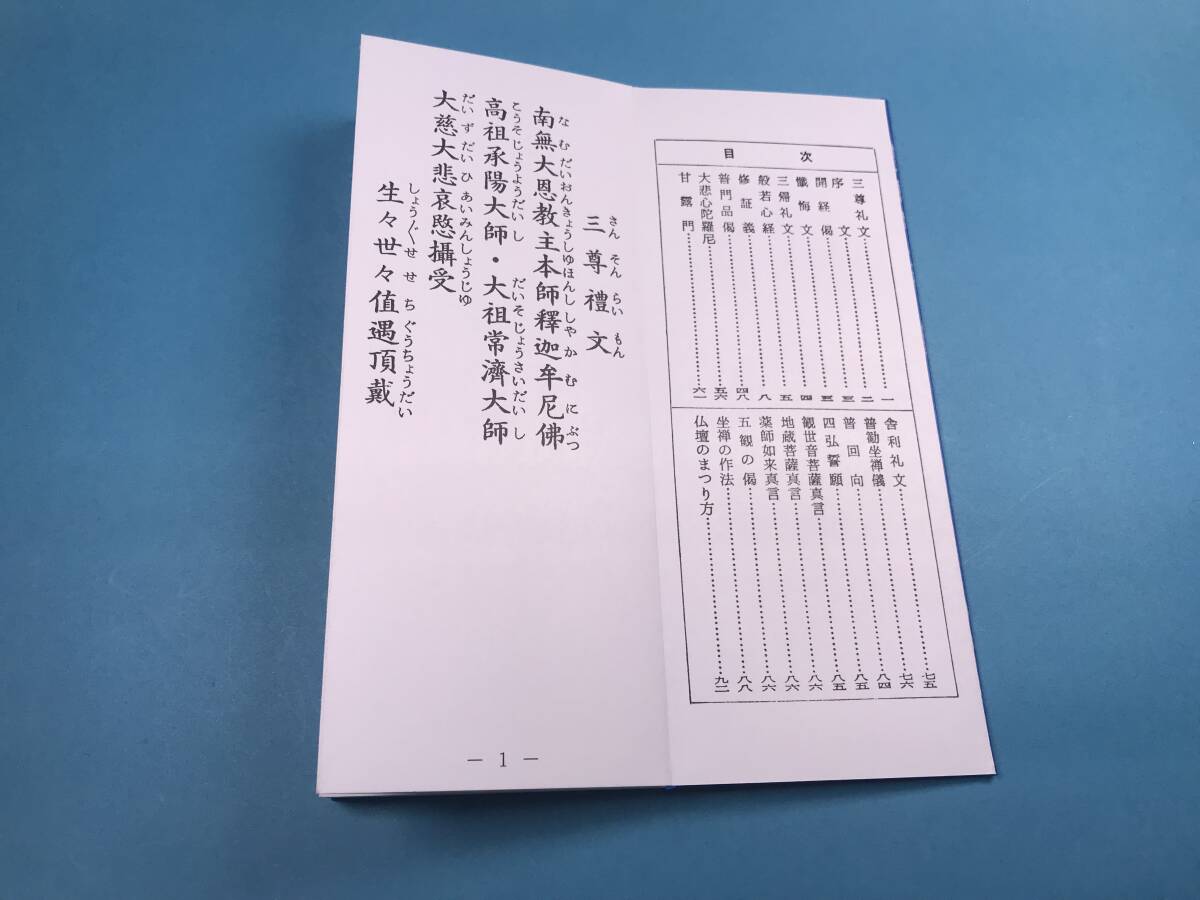 目次
三尊礼文……一
序文……二
開経偈……三
懺悔文……三
三帰礼文……四
般若心経……五
修証義……八
普門品偈……四八
大悲心陀羅尼……五六
甘露門……六一
舎利礼文……七五
普勧坐禅儀……七六
普回向……八四
四弘誓願……八五
観世音菩薩真言……八五
地蔵菩薩真言……八六
薬師如来真言……八六
五観の偈……八六
坐禅の作法……八八
仏壇のまつり方……九二
さんそんらいもん
三尊禮文
なむだいおんきょうしゅほんししゃかむにぶつ
南無大恩教主本師釋迦牟尼佛
こうそじょうようだいし だいそじょうさいだいし
高祖承陽大師・大祖常濟大師
だいずだいひあいみんしょうじゅ
大慈大悲哀愍攝受
しょう〴〵せせちぐうちょうだい
生々世々値遇頂戴
― 1 ―